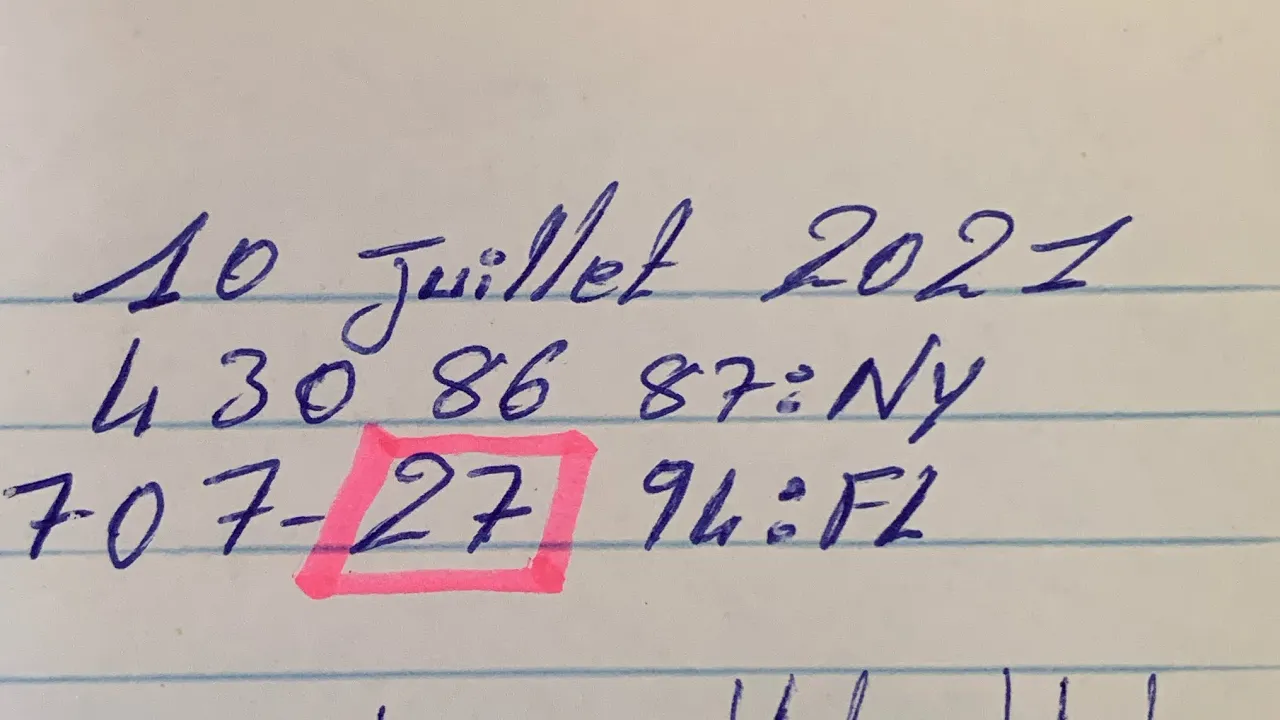 10 juillet 2021
4 30 86 87: NY
707-27 94: FL